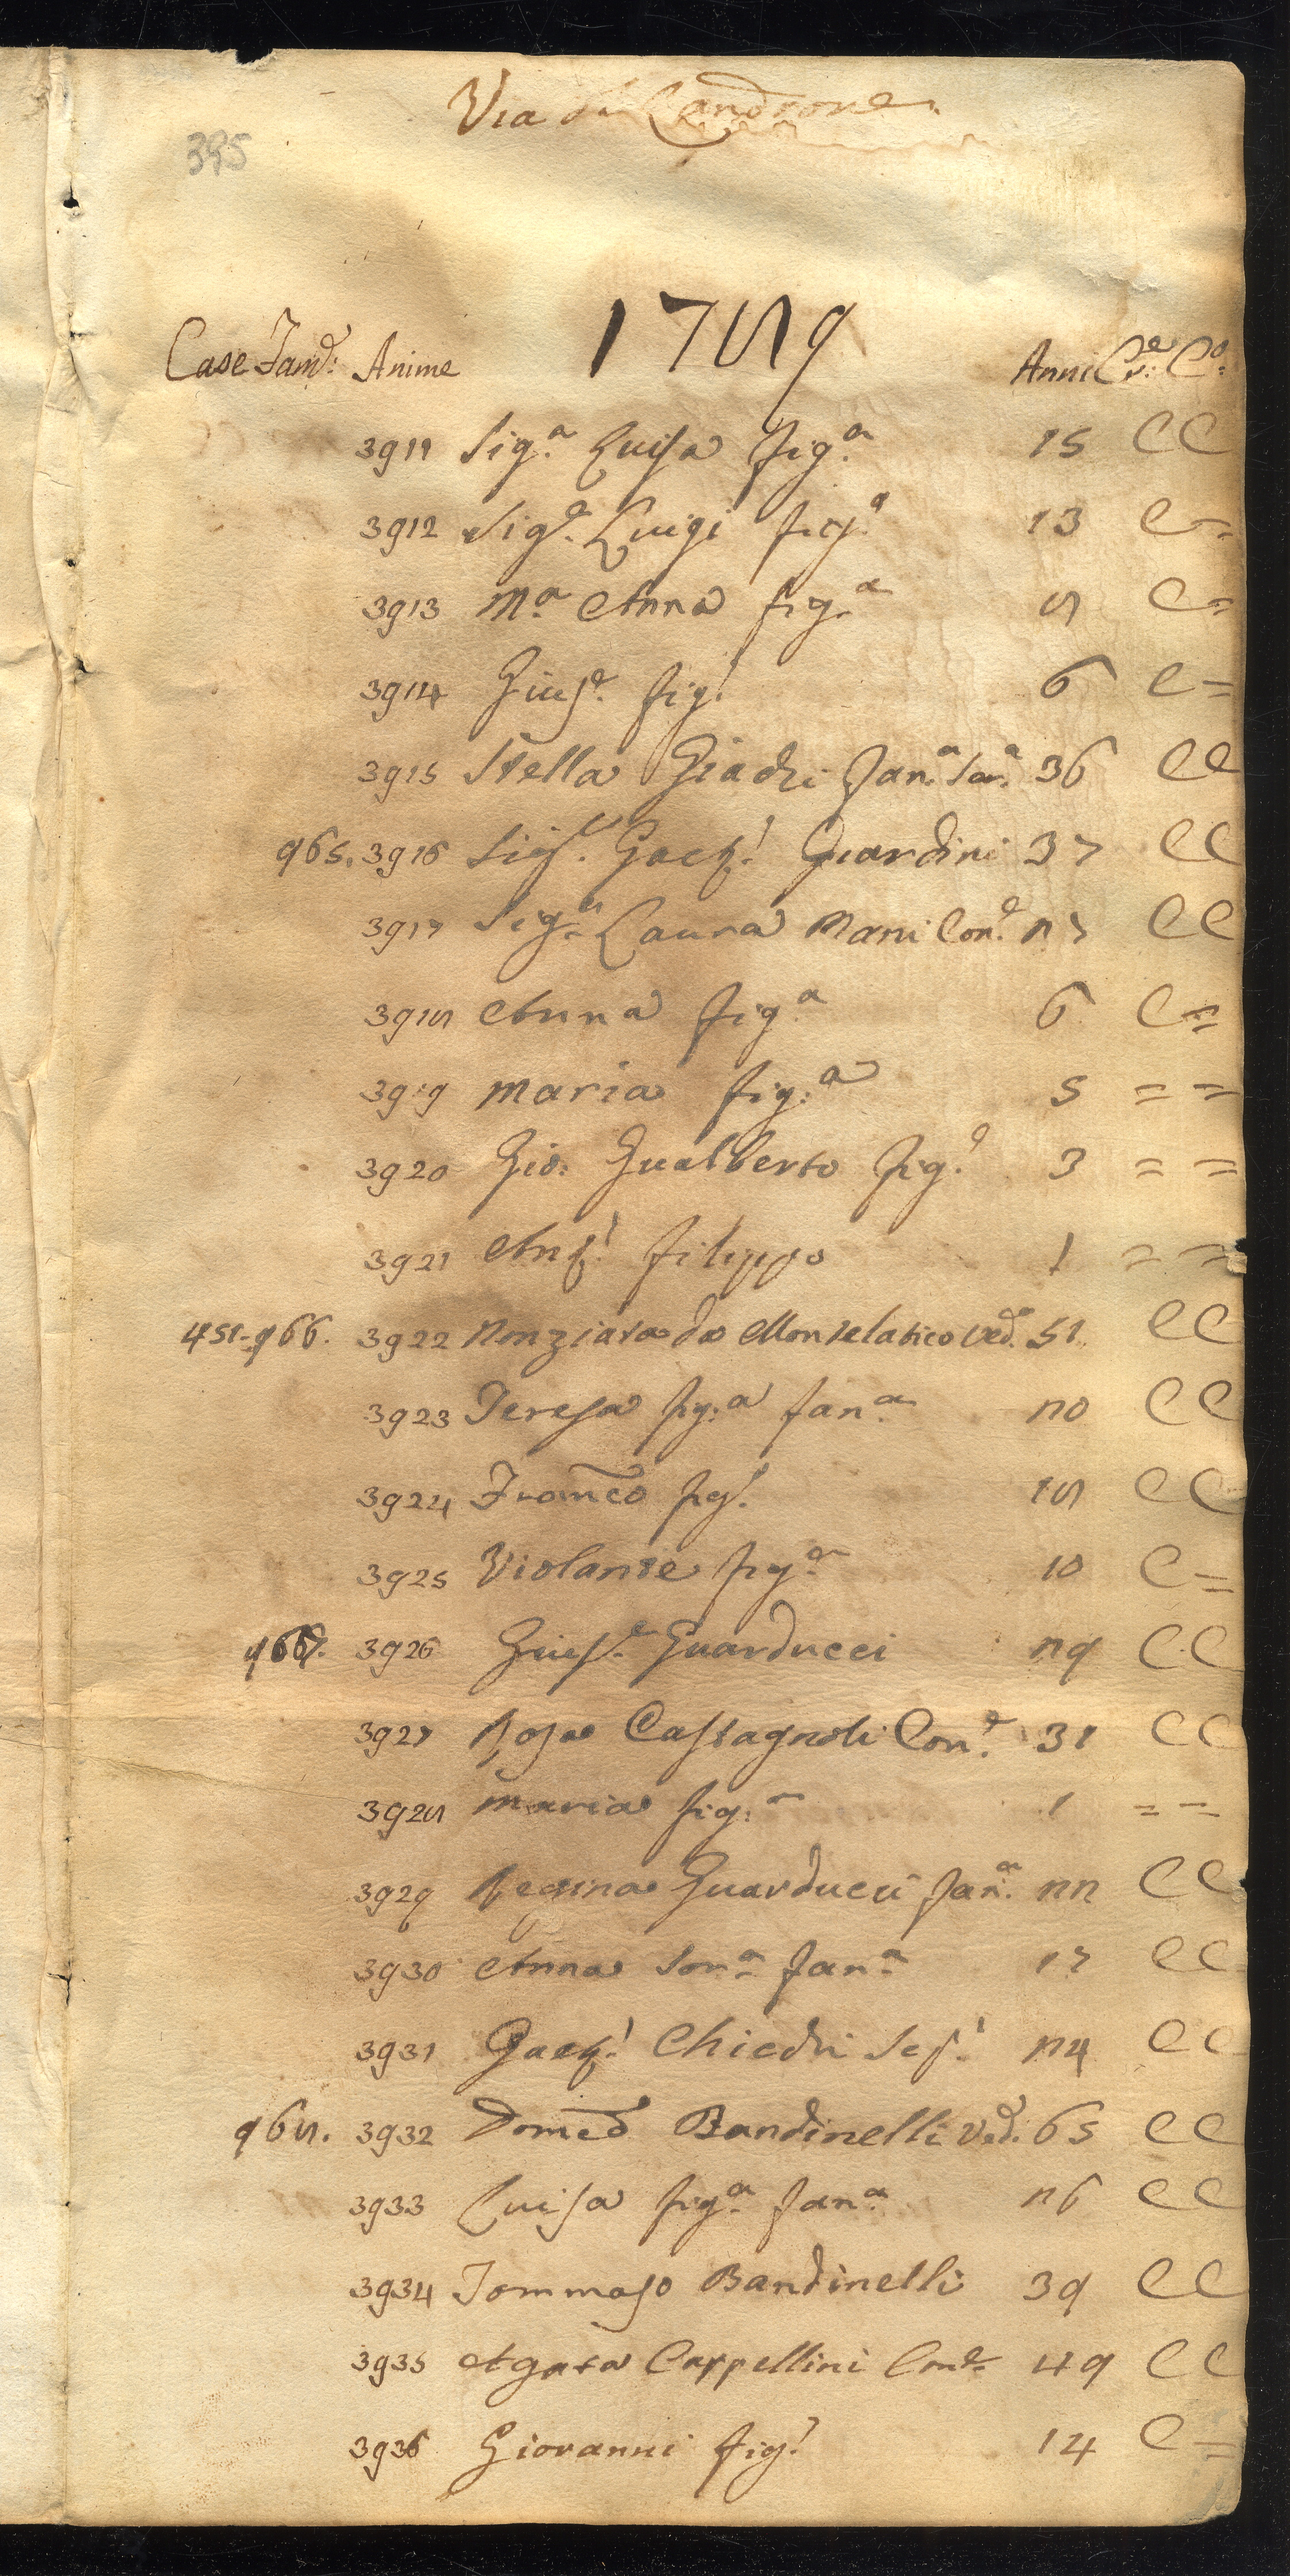 Via di Candrone
395
1789
Case Famᵉ: Anime Anni Cʳᵉ: Cº:
3911 Sig.ª Luisa fig.ª 15 C C
3912 Sig.ᵉ Luigi fig.º 13 C =
3913 Mª Anna fig.ª 8 C =
3914 Giusᵉ. fig.º 6 C =
3915 Stella Giachi fan.ª ser.ª 36 C C
965. 3916 Sigʳ. Gaetº. Guardini 37 C C
3917 Sigª. Laura Nani Con.ᵉ 27 C C
3918 Anna fig.ª 6 C =
3919 Maria fig:ª 5 = =
3920 Gio: Gualberto fig.º 3 = =
3921 Antº. Filippo 1 = =
451. 966. 3922 Nonziata da Montelatico Ved.ª 51 C C
3923 Teresa fig:ª fan.ª 20 C C
3924 Franc̃o fig.º 18 C C
3925 Violante fig.ª 10 C =
967. 3926 Giusᵉ. Guarducci 29 C C
3927 Rosa Castagnoli Con.ᵉ 31 C C
3928 Maria fig:ª 1 = =
3929 Regina Guarducci fan.ª 22 C C
3930 Anna Sor.ª fan.ª 17 C C
3931 Gaetº. Chiedi 24 C C
968. 3932 Domc̃o Bandinelli Ved.º 65 C C
3933 Luisa fig.ª fan.ª 26 C C
3934 Tommaso Bandinelli 39 C C
3935 Agata Cappellini Conᵉ. 49 C C
3936 Giovanni fig.º 14 C =